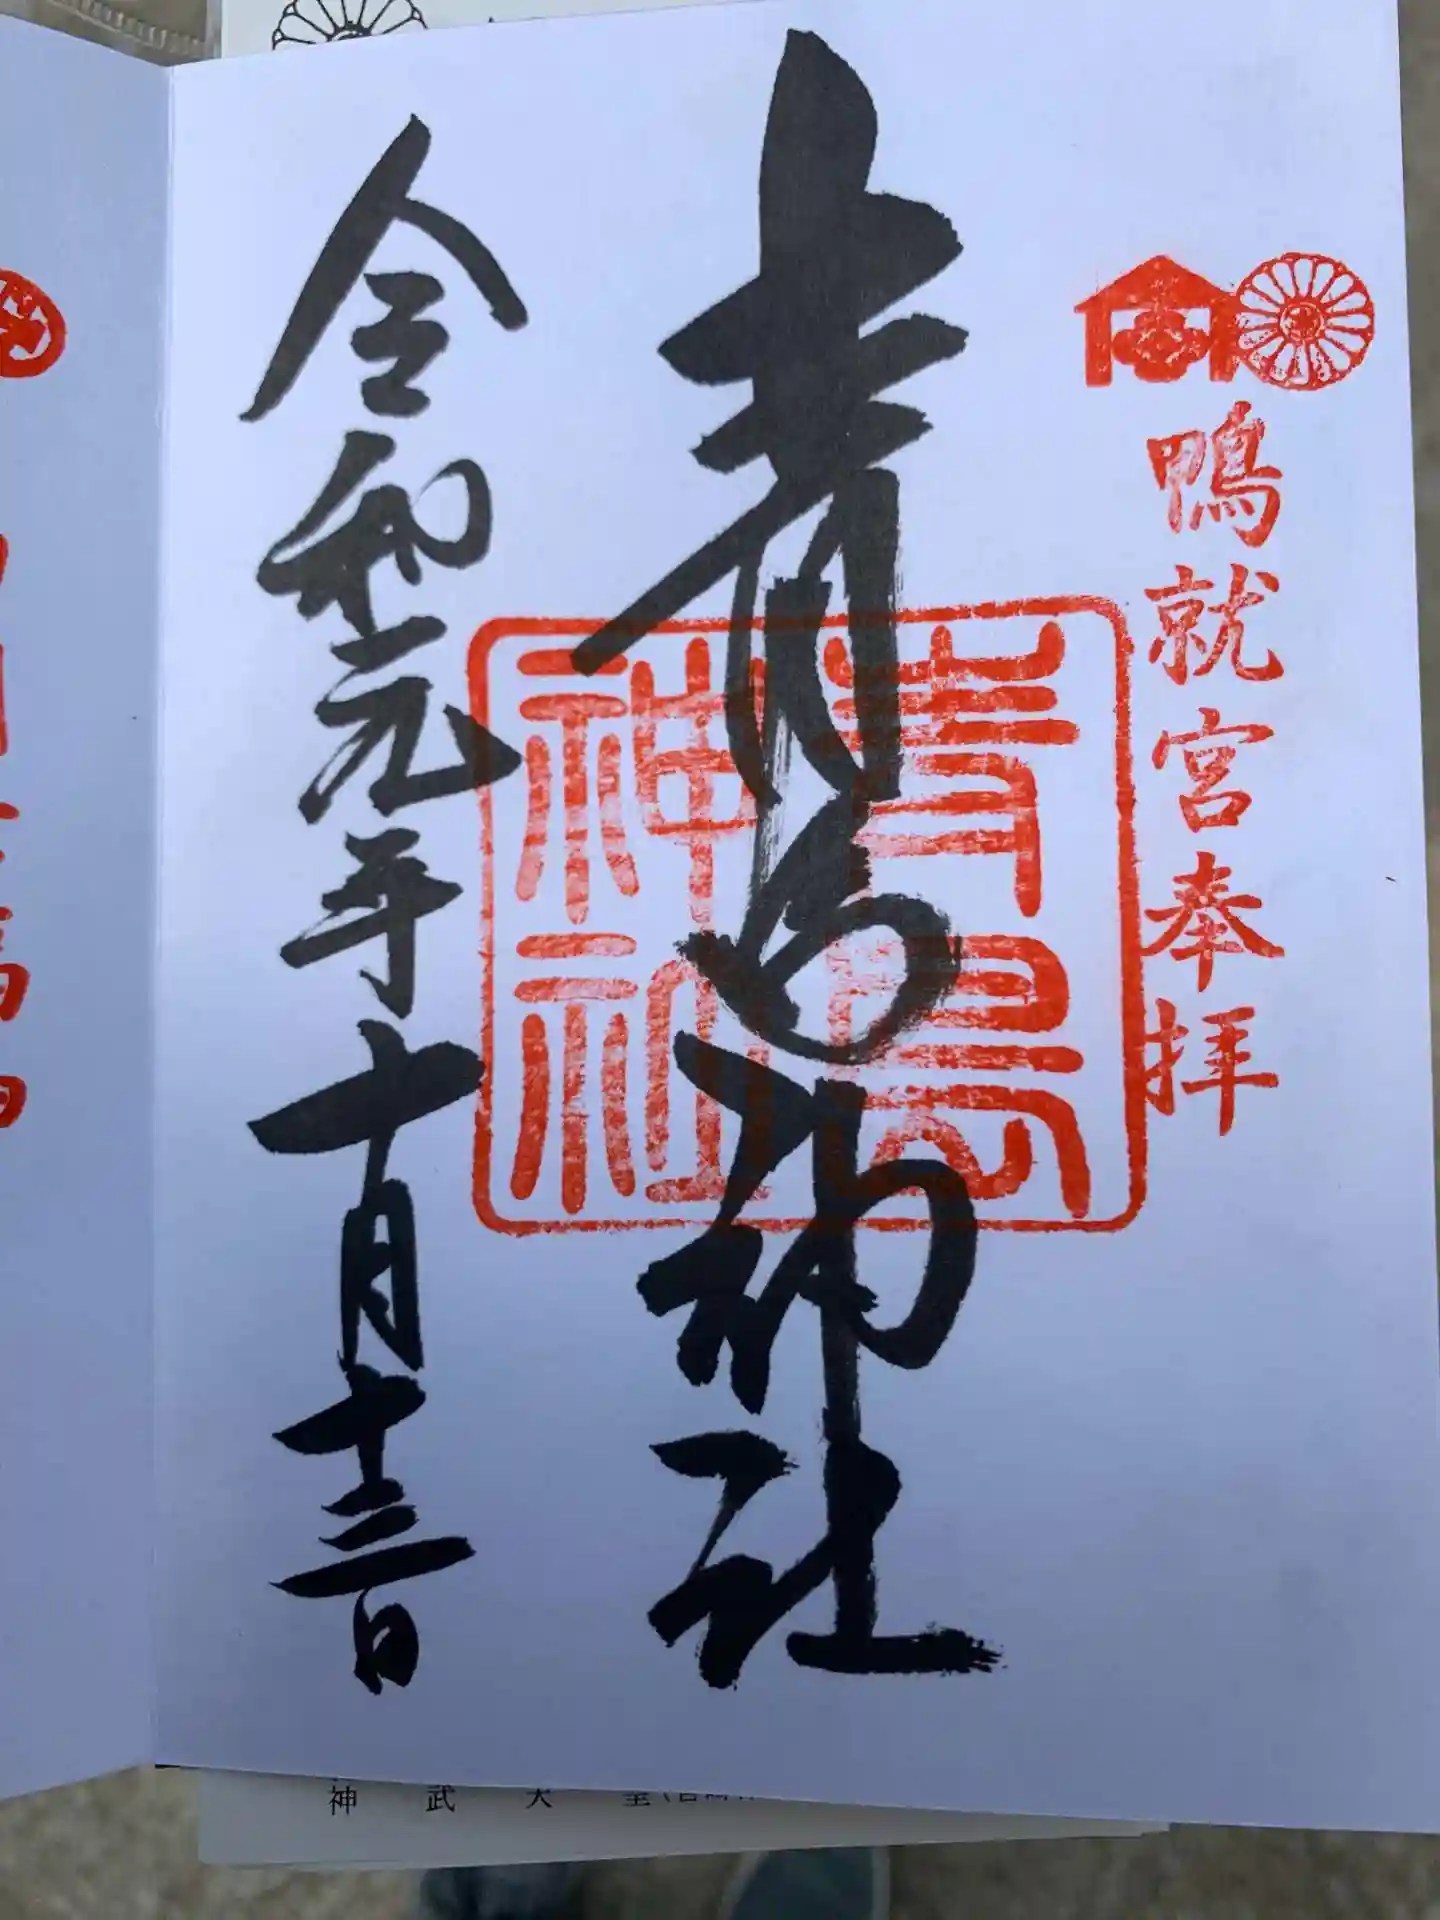 鴨就宮奉拝
青島神社
青島神社
令和元年十月十三日
神武天皇